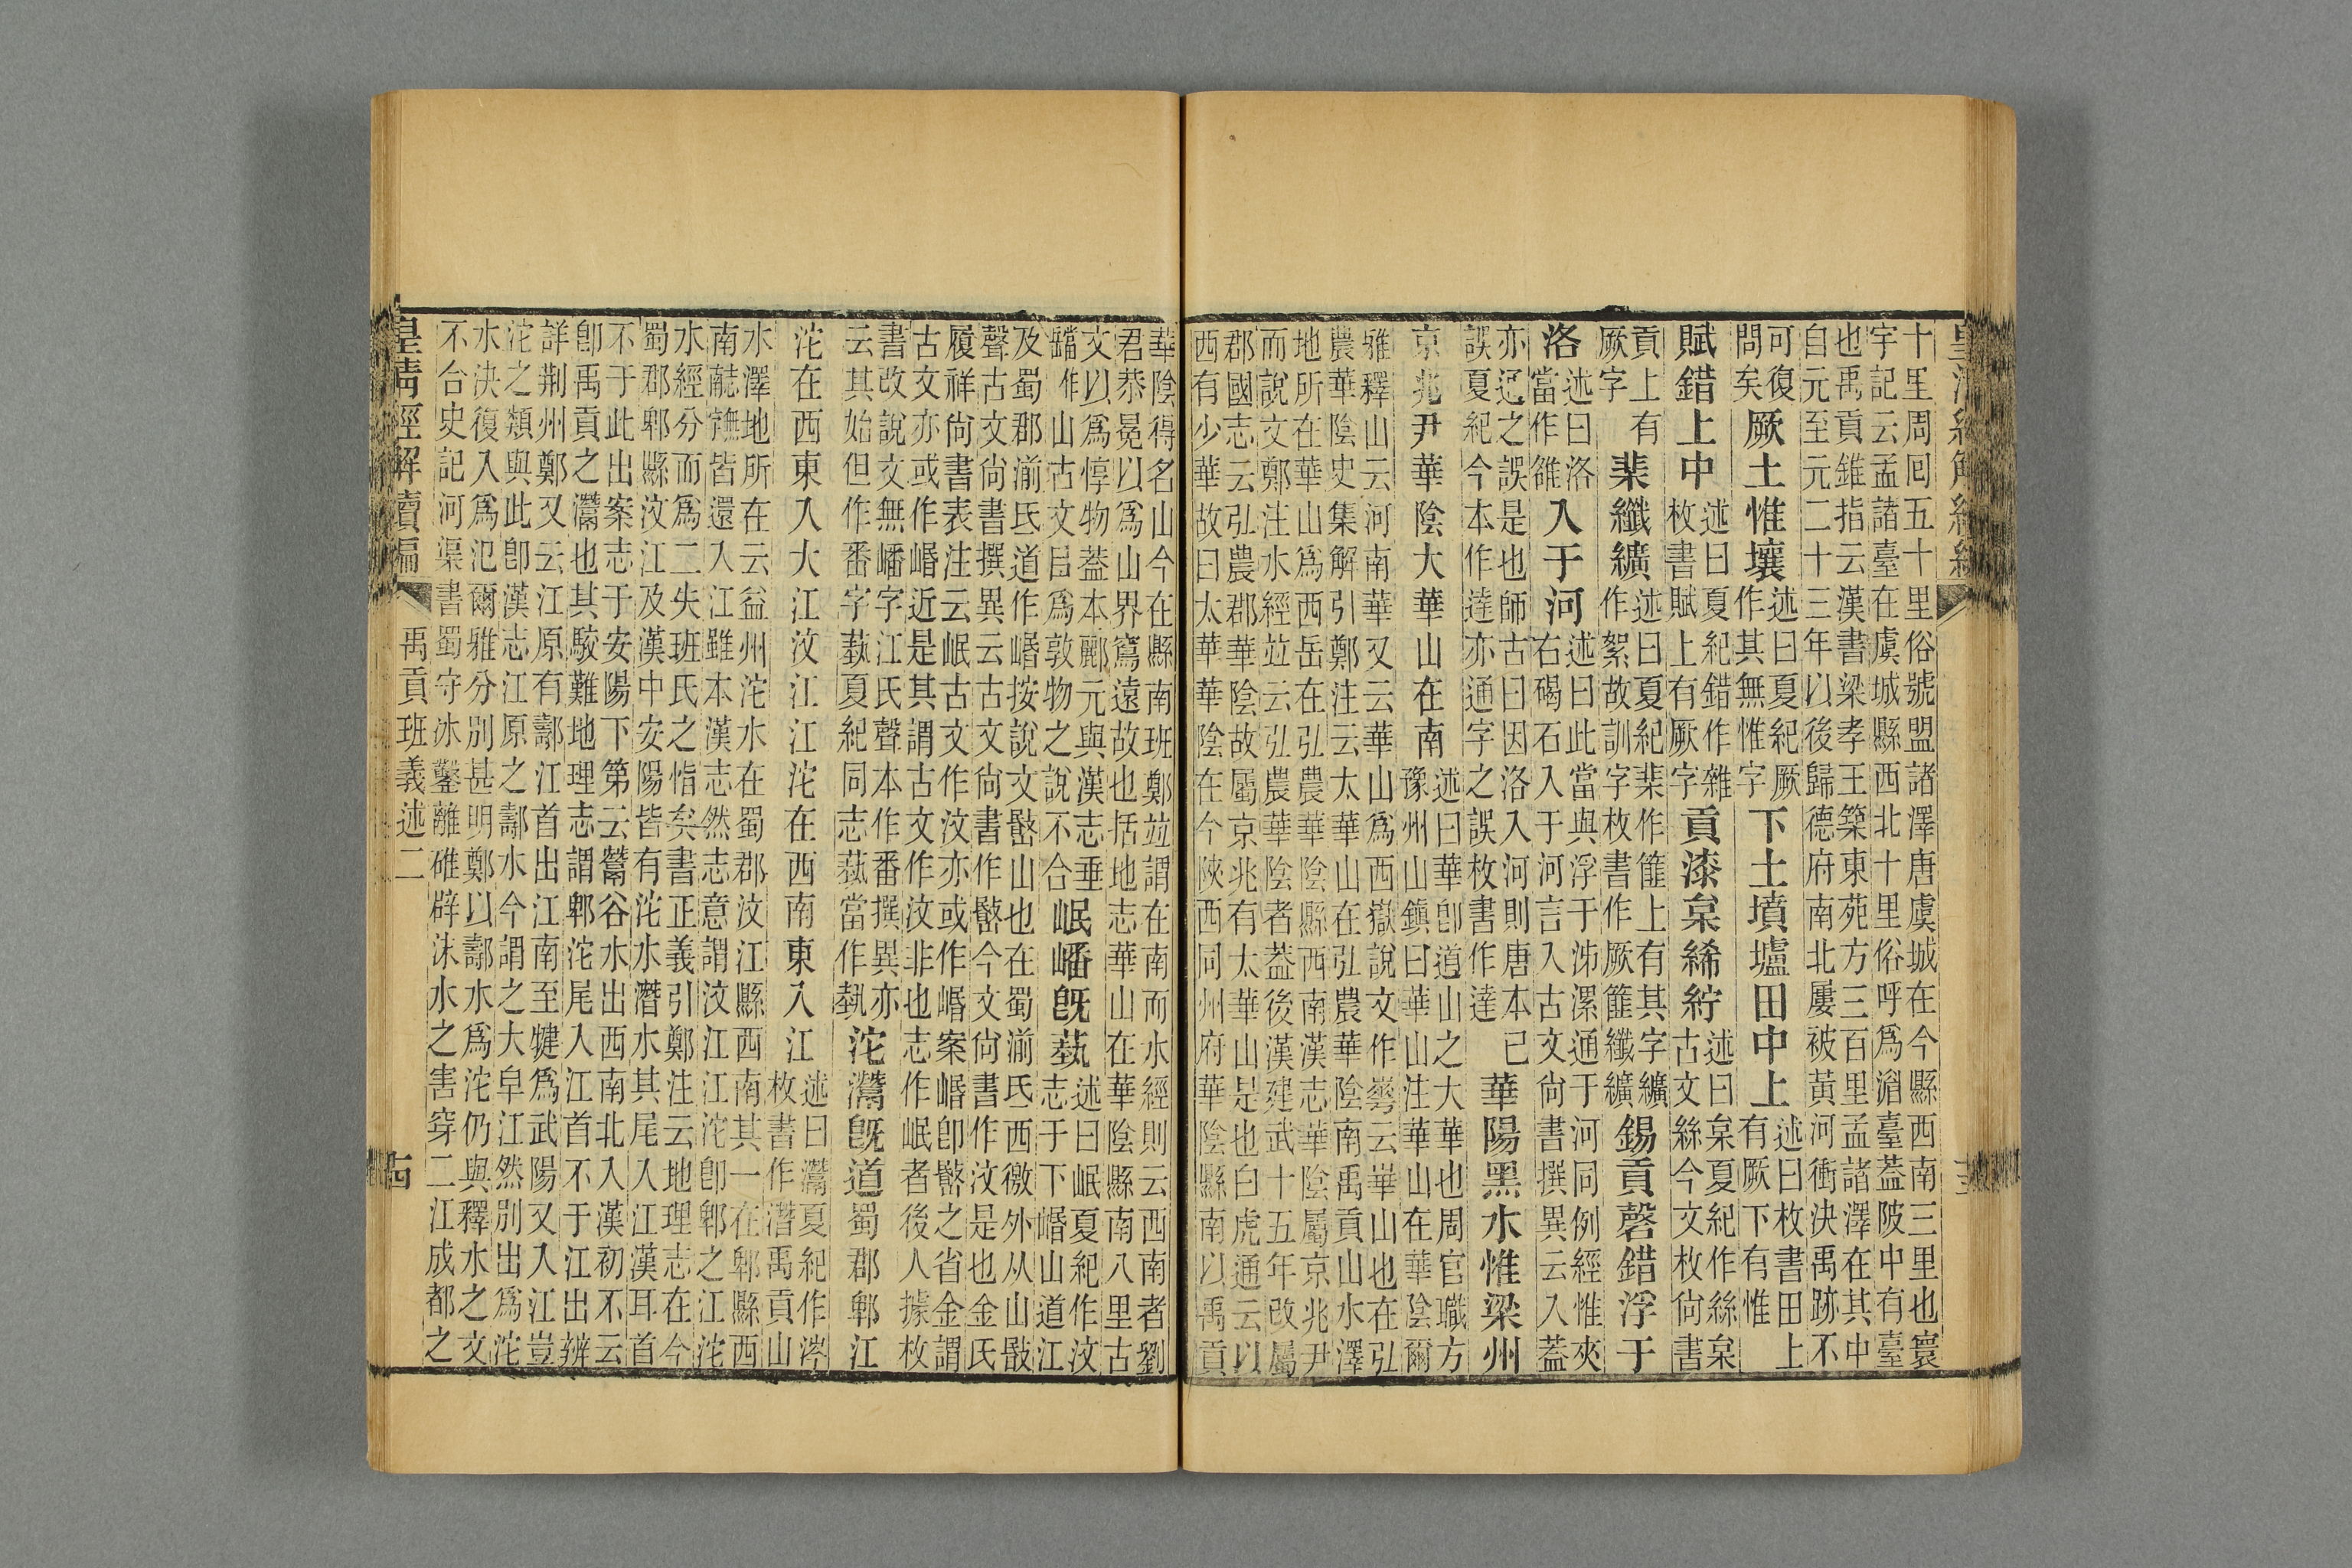 十里周回五十里俗號盟諸澤唐虞城在今縣西南三里也寰
宇記云孟諸臺在虞城縣西北十里俗呼爲湄臺蓋陂中有臺
也禹貢錐指云漢書梁孝王築東苑方三百里孟諸澤在其中
自元至元二十三年以後歸德府南北屢被黃河衝決禹跡不
可復問矣厥土惟壤述曰夏紀厥作其無惟字下土墳壚田中上述曰枚書田上有厥下有惟
賦錯上中述曰夏紀錯作雜枚書賦上有厥字貢漆枲絺紵述曰枲夏紀作絲枲古文絲今文枚尙書
貢上有厥字棐纖纊述曰夏紀棐作篚上有其字纊作絮故訓字枚書作厥篚纖纊錫貢磬錯浮于
洛述曰洛當作雒入于河述曰此當與浮于泲漯通于河同例經惟夾右碣石入于河言入古文尙書撰異云入蓋
亦逕之誤是也師古曰因洛入河則唐本已誤夏紀今本作達亦通字之誤枚書作達華陽黑水惟梁州
京兆尹華陰大華山在南述曰華卽道山之大華也周官職方豫州山鎮曰華山注華山在華陰爾
雅釋山云河南華又云華山爲西嶽說文作崋云崋山也在弘
農華陰史集解引鄭注云太華山在弘農華陰南禹貢山水澤
地所在華山爲西岳在弘農華陰縣西南漢志華陰屬京兆尹
而說文鄭注水經竝云弘農華陰者蓋後漢建武十五年改屬
郡國志云弘農郡華陰故屬京兆有太華山是也白虎通云以
西有少華故曰太華華陰在今陝西同州府華陰縣南以禹貢
華陰得名山今在縣南班鄭竝謂在南而水經則云西南者劉
君恭冕以爲山界寫遠故也括地志華山在華陰縣南八里古
文以爲惇物蓋本酈元與漢志垂作山古文㠯爲敦物之說不合岷嶓旣蓺述曰岷夏紀作汶志于下崏山道江
及蜀郡湔氐道作崏按說文㟭山也在蜀湔氐西徼外从山敯
聲古文尙書撰異云古文尙書作㟭今文尙書作汶是也金氏
履祥尙書表注云岷古文作汶亦或作崏案崏卽㟭之省金謂
古文亦或作崏近是其謂古文作汶非也志作岷者後人據枚
書改說文無嶓字江氏聲本作番撰異亦云其始但作番字蓺夏紀同志蓺當作埶沱灊旣道蜀郡郫江
沱在西東入大江汶江江沱在西南東入江述曰灊夏紀作涔枚書作潛禹貢山
水澤地所在云益州沱水在蜀郡汶江縣西南其一在郫縣西
南皆還入江雖本漢志然志意謂汶江江沱卽郫之江沱
水經分而爲二失班氏之恉矣書正義引鄭注云地理志在今
蜀郡郫縣汶江及漢中安陽皆有沱水潛水其尾入江漢耳首
不于此出案志于安陽下第云鬵谷水出西南北入漢初不云
卽禹貢之灊也其駮難地理志謂郫沱尾入江首不于江出辨
詳荆州鄭又云江原有𨞪江首出江南至犍爲武陽又入江豈
沱之類與此卽漢志江原之𨞪水今謂之大皁江然別出爲沱
水決復入爲氾爾雅分別甚明鄭以𨞪水爲沱仍與釋水之文
不合史記河渠書蜀守冰鑿離碓辟沫水之害穿二江成都之
皇清經解續編
禹貢班義述二
十四